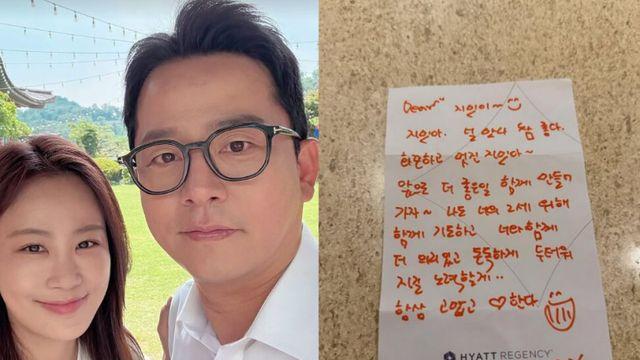 Dear 지일이~
지일아. 널 만나 참 좋다.
하고 멋진 지일아~
앞으로 더 좋은일 함께 만들어
가자~ 나도 너의 위해
함께 기도하고 너와함께
더 돈독하게 두터워
지길 노력할게..
항상 고맙고 ♡한다
HYATT REGENCY